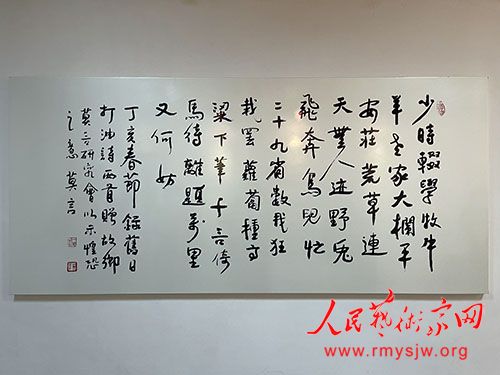 少時輟學牧牛
羊老家大欄平
安莊荒草連
天無人迹野兔
飛奔鳥兒忙
二十九省數我狂
栽罷蘿蔔種高
粱下筆千言倚
馬待離題萬里
又何妨
丁亥春節錄舊日
打油詩兩首贈故鄉
莫言研究會以示惶恐
之意莫言
人民藝術家网
www.rmysjw.org